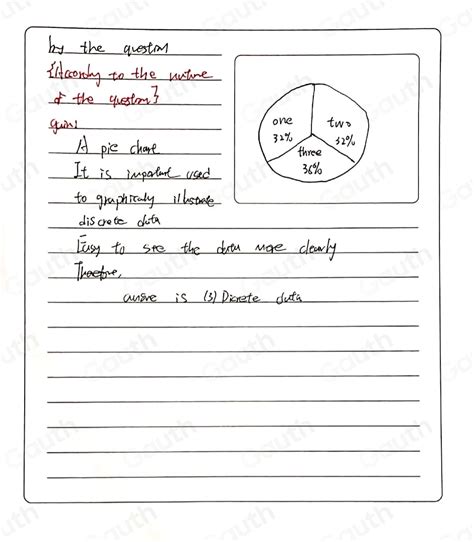 by the question
{According to the nature
of the question}
given:
A pie chart
It is important used
to graphically illustrate
discrete data
Easy to see the data more clearly
Therefore,
is (3) Discrete data
one
32%
two
32%
three
36%